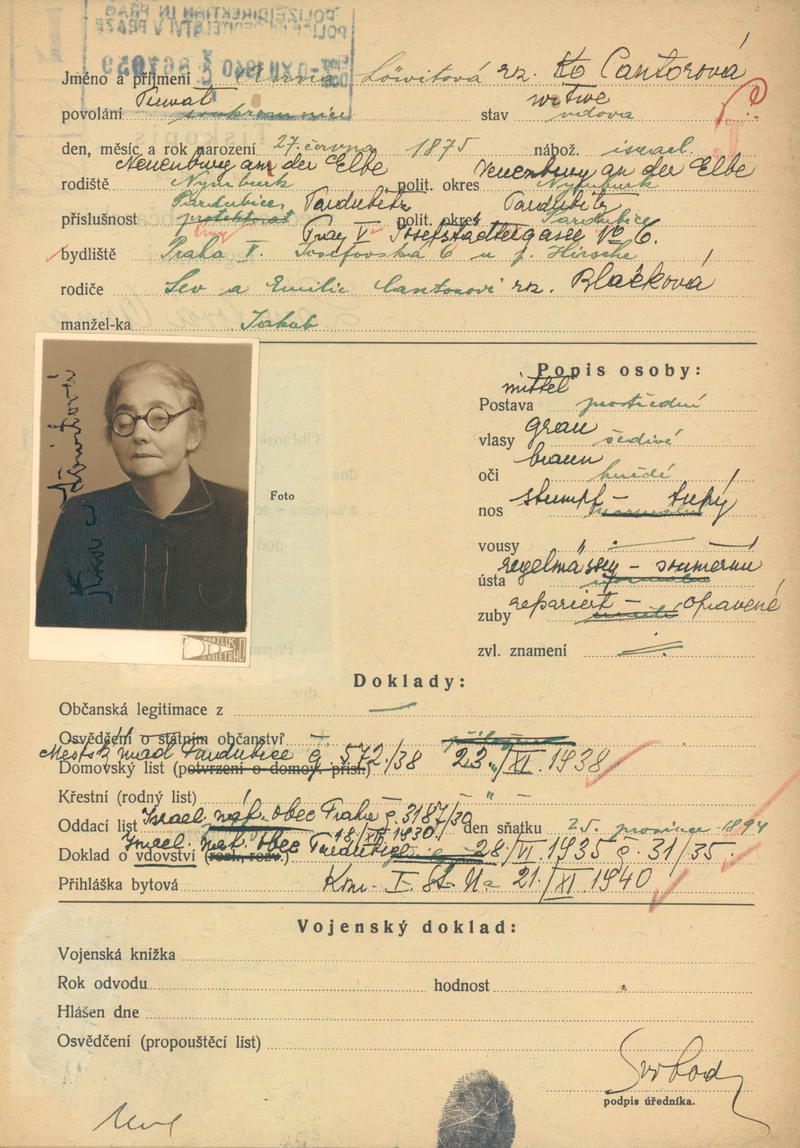 POLIZEIDIREKTION IN PRAG
POLICEJNÍ ŘEDITELSTVÍ V PRAZE
Jméno a příjmení Anna Löwitová rz. Cantorová
Privat
witwe
povolání soukromnice stav vdova
den, měsíc a rok narození 27. června 1875 nábož. israel.
Neuenburg an der Elbe Neuenburg an der Elbe
rodiště Nymburk polit. okres Nymburk
Pardubice Pardubitz Pardubitz
příslušnost protektorat polit. okres Pardubice
Prag V Josefstädtergasse No 6.
bydliště Praha V. Josefovská 6 u p. Hirsche
rodiče Lev a Emilie Cantorovi rz. Blačková
manžel-ka Jakub
Popis osoby:
mittel
Postava prostřední
grau
vlasy šedivé
braun
oči hnědé
stumpf – tupý
nos normální
vousy
regelmässig – souměrná
ústa
repariert – opravené
zuby
zvl. znamení
Foto
Löwitová
Doklady:
Občanská legitimace z
Osvědčení o státním občanství
Městský úřad Pardubice č. 572/38 23./XI. 1938
Domovský list (potvrzení o domov. přísl.)
Křestní (rodný list)
Israel. náb. obec Praha č. 3187/30
Oddací list 18./XII. 1930. den sňatku 25. prosince 1894
Israel. nát. obec Pardubice 28./VI. 1935 č. 31/35
Doklad o vdovství (rozl., rozv.)
Přihláška bytová Kom. I. St. Na 21./XI. 1940
Vojenský doklad:
Vojenská knížka
Rok odvodu hodnost
Hlášen dne
Osvědčení (propouštěcí list)
Svoboda
podpis úředníka.